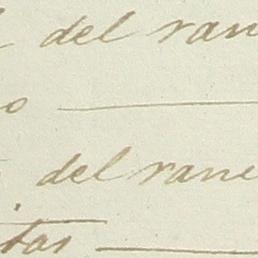 del ran
o
del rane
tas